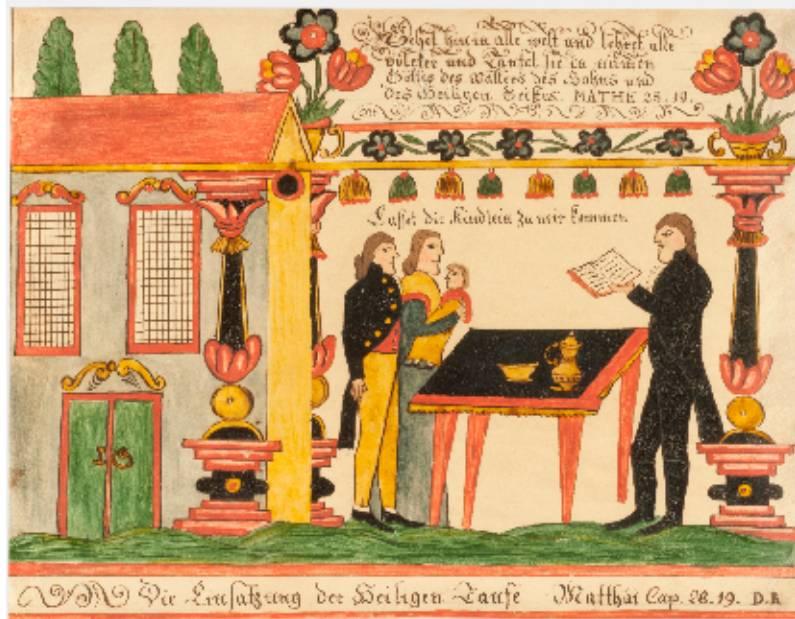 Gehet hin in alle welt und lehret alle
völcker und Taufet sie in nämen
Gottes des Vatters des Sohns und
des Heiligen Geistes. MATHE 28. 19.
Lasset die Kindlein zu mir kommen
Die Einsatzung der Heiligen Taufe Matthäi Cap. 28. 19. D.R